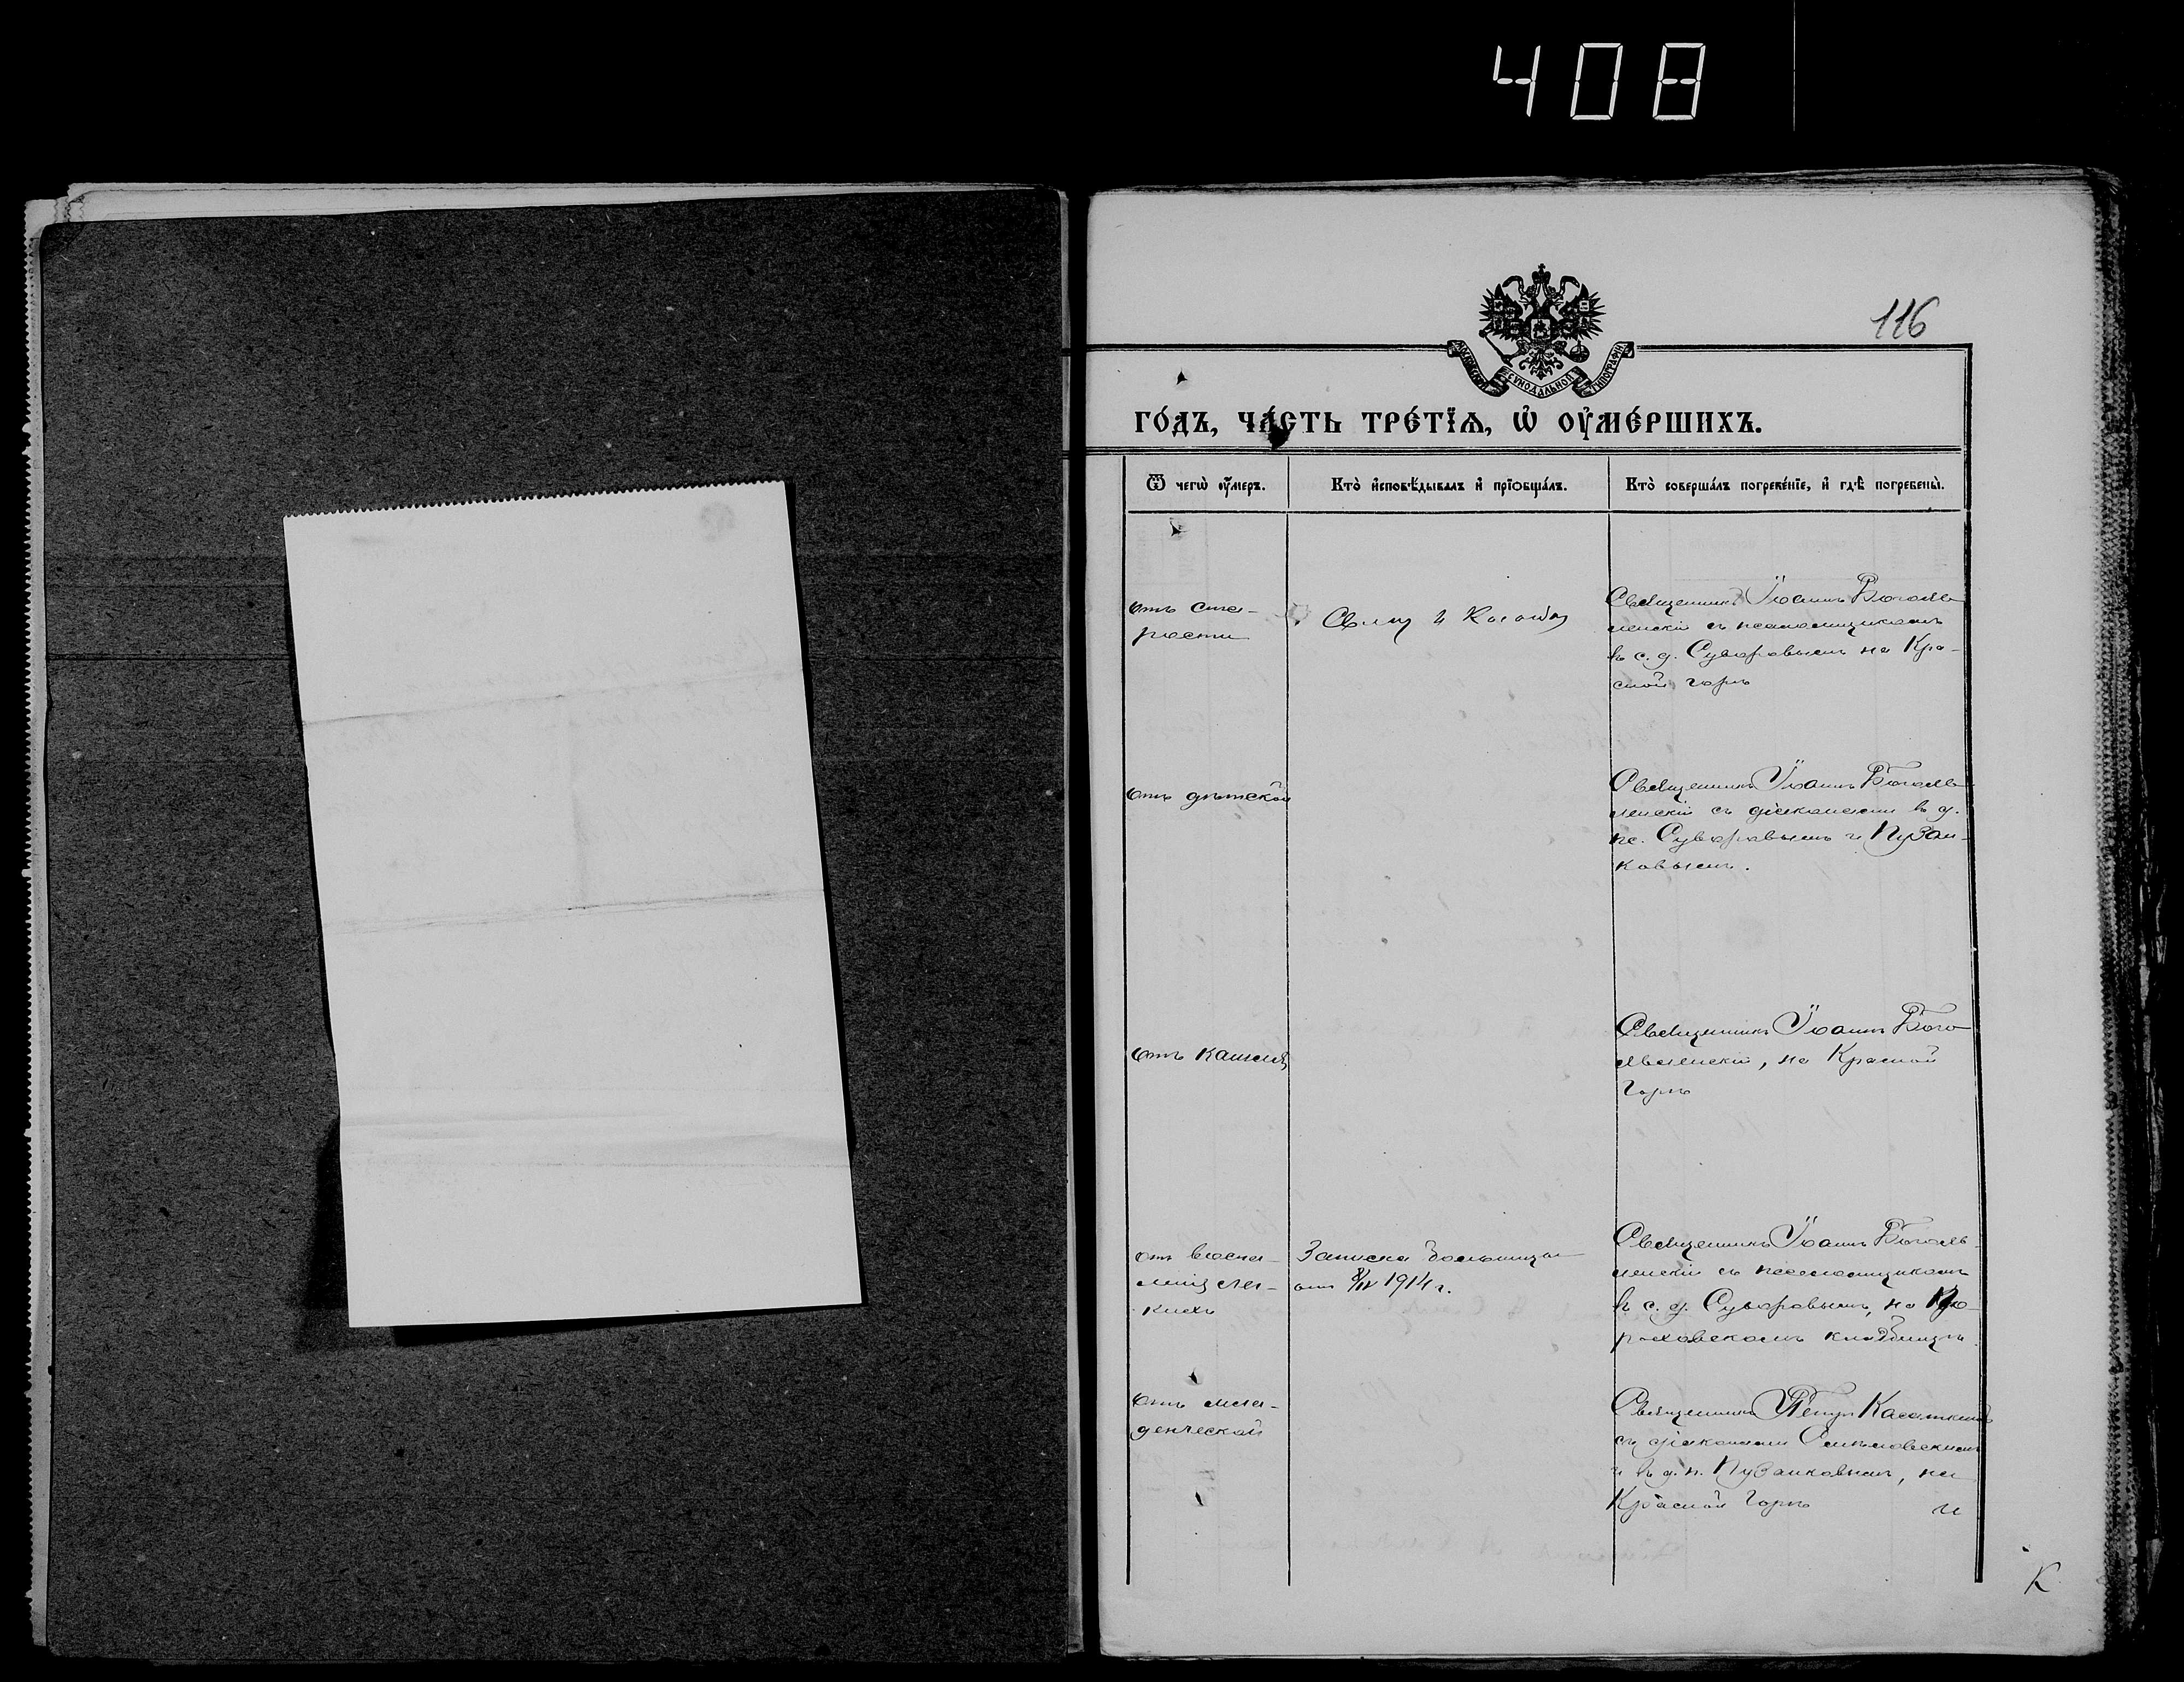 408
116
МОСКОВСКОЙ СѴНОДАЛЬНОЙ ТИПОГРАФІИ
ГО́ДЪ, ЧА́СТЬ ТРЕ́ТЇѦ, Ѡ҆ ОУ҆МЕ́РШИХЪ.
Ѿ чегѡ̀ оу҆́меръ.
Кто̀ и҆сповѣ́дывалъ и҆ прїѡбща́лъ.
Кто̀ соверша́лъ погребе́нїе, и҆ гдѣ̀ погребены̀.
отъ ста-
рости
Священникъ Іоаннъ Богояв-
ленскій съ псаломщикомъ
въ с. д. Суворовымъ на Кра-
сной горѣ
отъ дѣтской
Священникъ Іоаннъ Богояв-
ленскій съ діакономъ въ д.
пс. Суворовымъ и Пузан-
ковымъ.
отъ кашля
Священникъ Іоаннъ Бого
явленскій, на Красной
Горѣ
отъ воспа-
ленія лег-
кихъ
Записка больницы
отъ 8/IV 1914 г.
Священникъ Іоаннъ Богояв-
ленскій съ псаломщикомъ
въ с. д. Суворовымъ, на
кладбищѣ.
отъ мла-
денческой
Священникъ Петръ Касаткинъ
съ діакономъ
и въ д. п. Пузанковымъ, на
Красной Горѣ
и
К